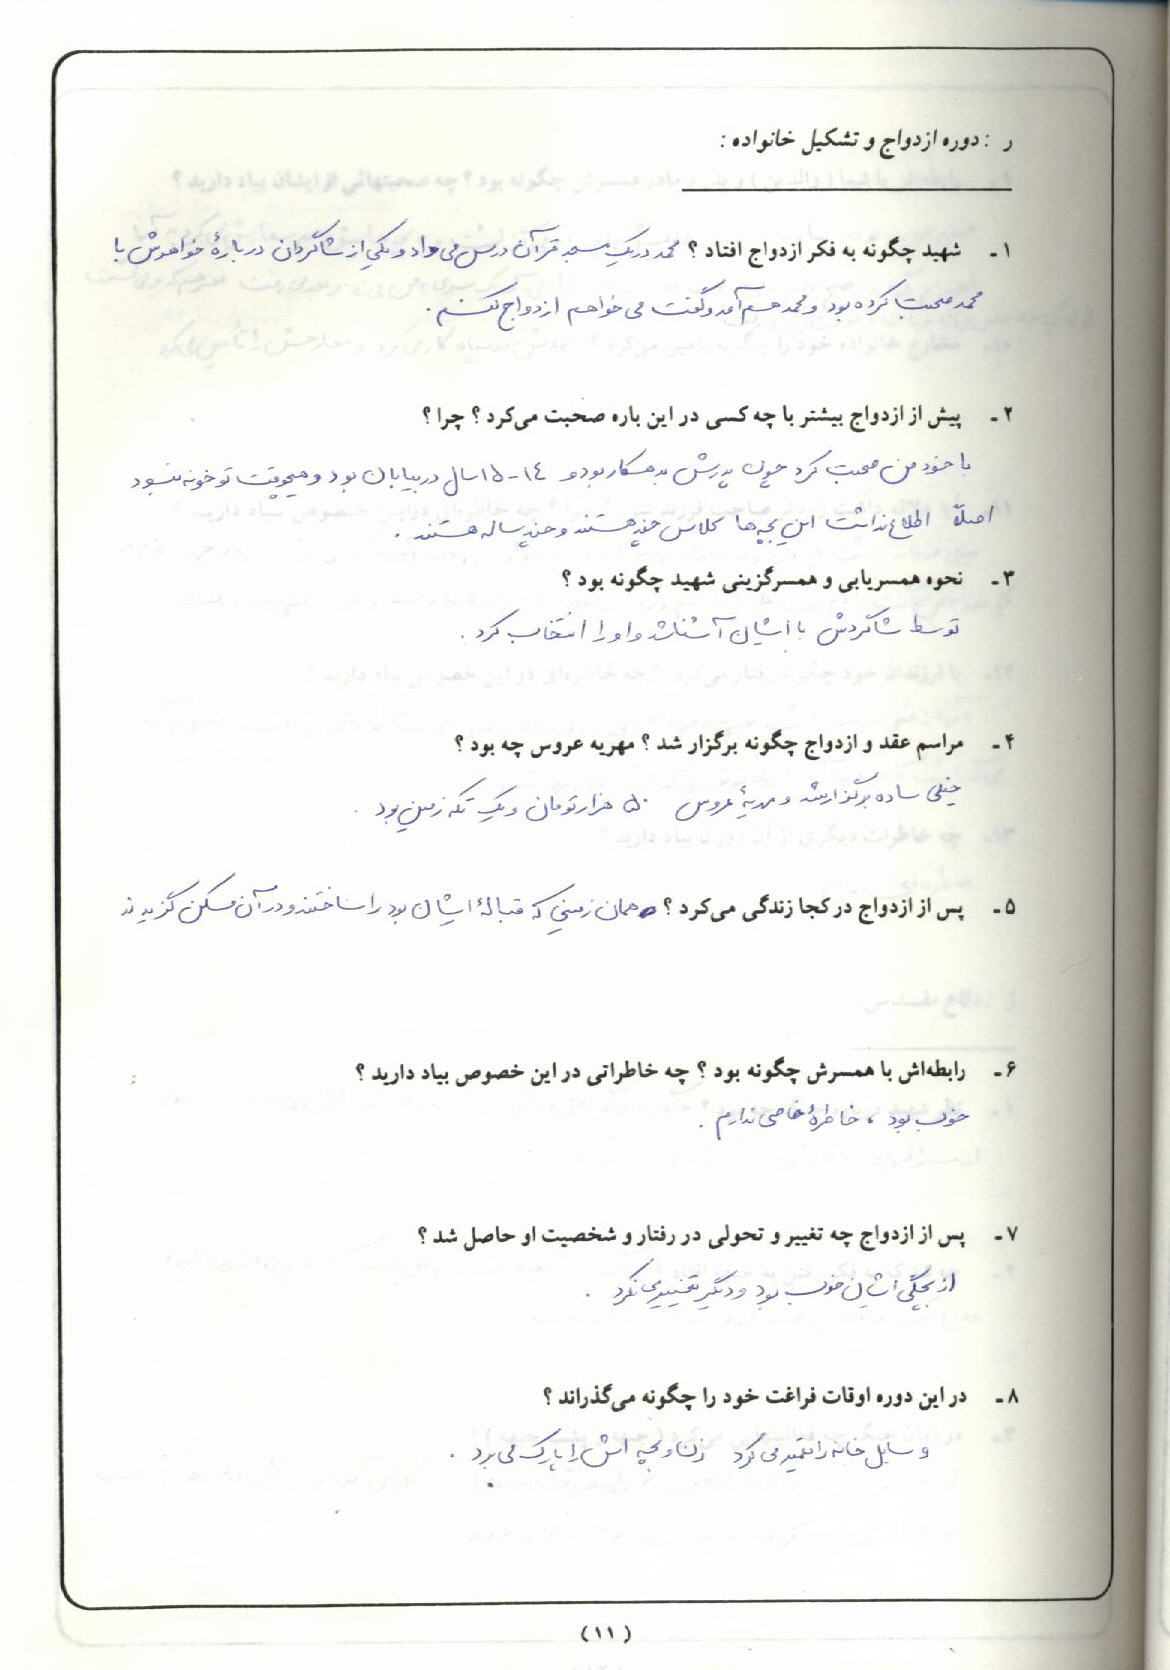 ر : دوره ازدواج و تشکیل خانواده :
۱ ـ شهید چگونه به فکر ازدواج افتاد ؟ محمد در یک مسجد قرآن درس می داد و یکی از شاگردان دربارهٔ خواهرش با
محمد صحبت کرده بود و محمد هم آمد و گفت می خواهم ازدواج کنم .
۲ ـ پیش از ازدواج بیشتر با چه کسی در این باره صحبت می‌کرد ؟ چرا ؟
با خود من صحبت کرد چون پدرش بدهکار بود و ۱۴ - ۱۵ سال در بیابان بود و هیچوقت تو خونه نبود
اصلاً اطلاع نداشت این بچه ها کلاس چند هستند و چند ساله هستند .
۳ ـ نحوه همسریابی و همسرگزینی شهید چگونه بود ؟
توسط شاگردش با ایشان آشنا شد و او را انتخاب کرد .
۴ ـ مراسم عقد و ازدواج چگونه برگزار شد ؟ مهریه عروس چه بود ؟
خیلی ساده برگزار شد و مهریهٔ عروس ۵۰ هزار تومان و یک تکه زمین بود .
۵ ـ پس از ازدواج در کجا زندگی می‌کرد ؟ همان زمینی که قبالهٔ ایشان بود را ساختند و در آن مسکن گزیدند
۶ ـ رابطه‌اش با همسرش چگونه بود ؟ چه خاطراتی در این خصوص بیاد دارید ؟
خوب بود ، خاطرهٔ خاصی ندارم .
۷ ـ پس از ازدواج چه تغییر و تحولی در رفتار و شخصیت او حاصل شد ؟
از بچگی ایشان خوب بود و دیگر تغییری نکرد .
۸ ـ در این دوره اوقات فراغت خود را چگونه می‌گذراند ؟
وسایل خانه را تعمیر می کرد زن و بچه اش را پارک می برد .
(۱۱)